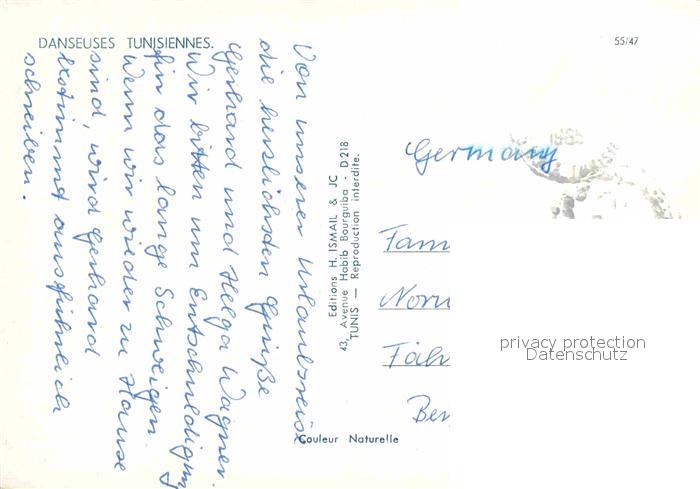 DANSEUSES TUNISIENNES.
55/47
Von unserer Urlaubsreise
die herzlichsten Grüße
Gerhard und Helga Wagner.
Wir bitten um Entschuldigung
für das lange Schweigen.
Wenn wir wieder zu Hause
sind, wird Gerhard
bestimmt ausführlich
schreiben.
Editions H. ISMAIL & JC
43, Avenue Habib Bourguiba - D 218
TUNIS — Reproduction interdite.
Germany
Fam
Couleur Naturelle
privacy protection
Datenschutz